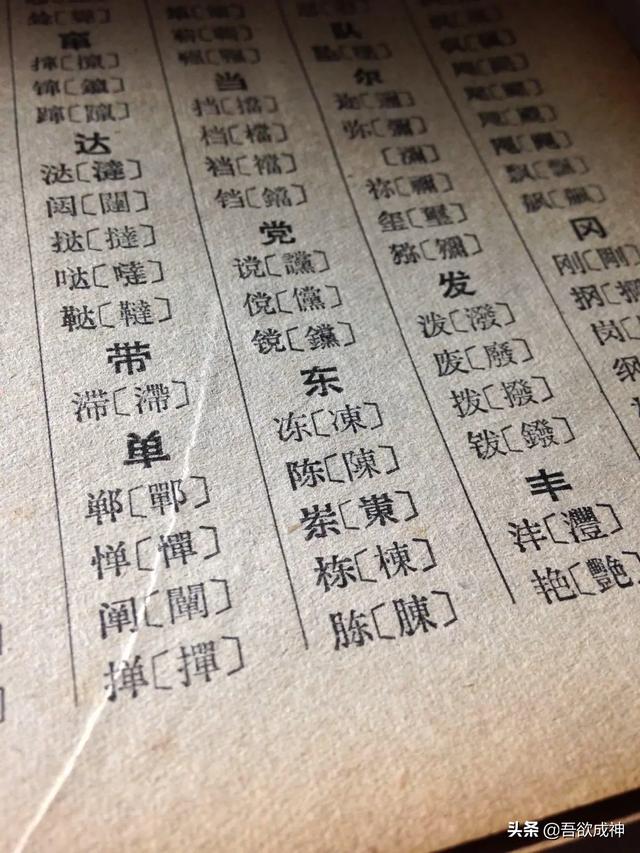 窜
撺[攛]
镩[鑹]
蹿[躥]
达
泷[澾]
闼[闥]
挞[撻]
哒[噠]
鞑[韃]
带
滞[滯]
单
郸[鄲]
惮[憚]
阐[闡]
掸[撣]
当
挡[擋]
档[檔]
裆[襠]
铛[鐺]
党
谠[讜]
傥[儻]
镋[钂]
东
冻[凍]
陈[陳]
岽[崬]
栋[棟]
胨[腖]
队
坠[墜]
尔
迩[邇]
弥[彌]
[瀰]
祢[禰]
玺[璽]
猕[獼]
发
泼[潑]
废[廢]
拨[撥]
钹[鈸]
丰
沣[灃]
艳[艷]
飘[飄]
飙[飆]
冈
刚[剛]
岗
纲
头条 @吾欲成神